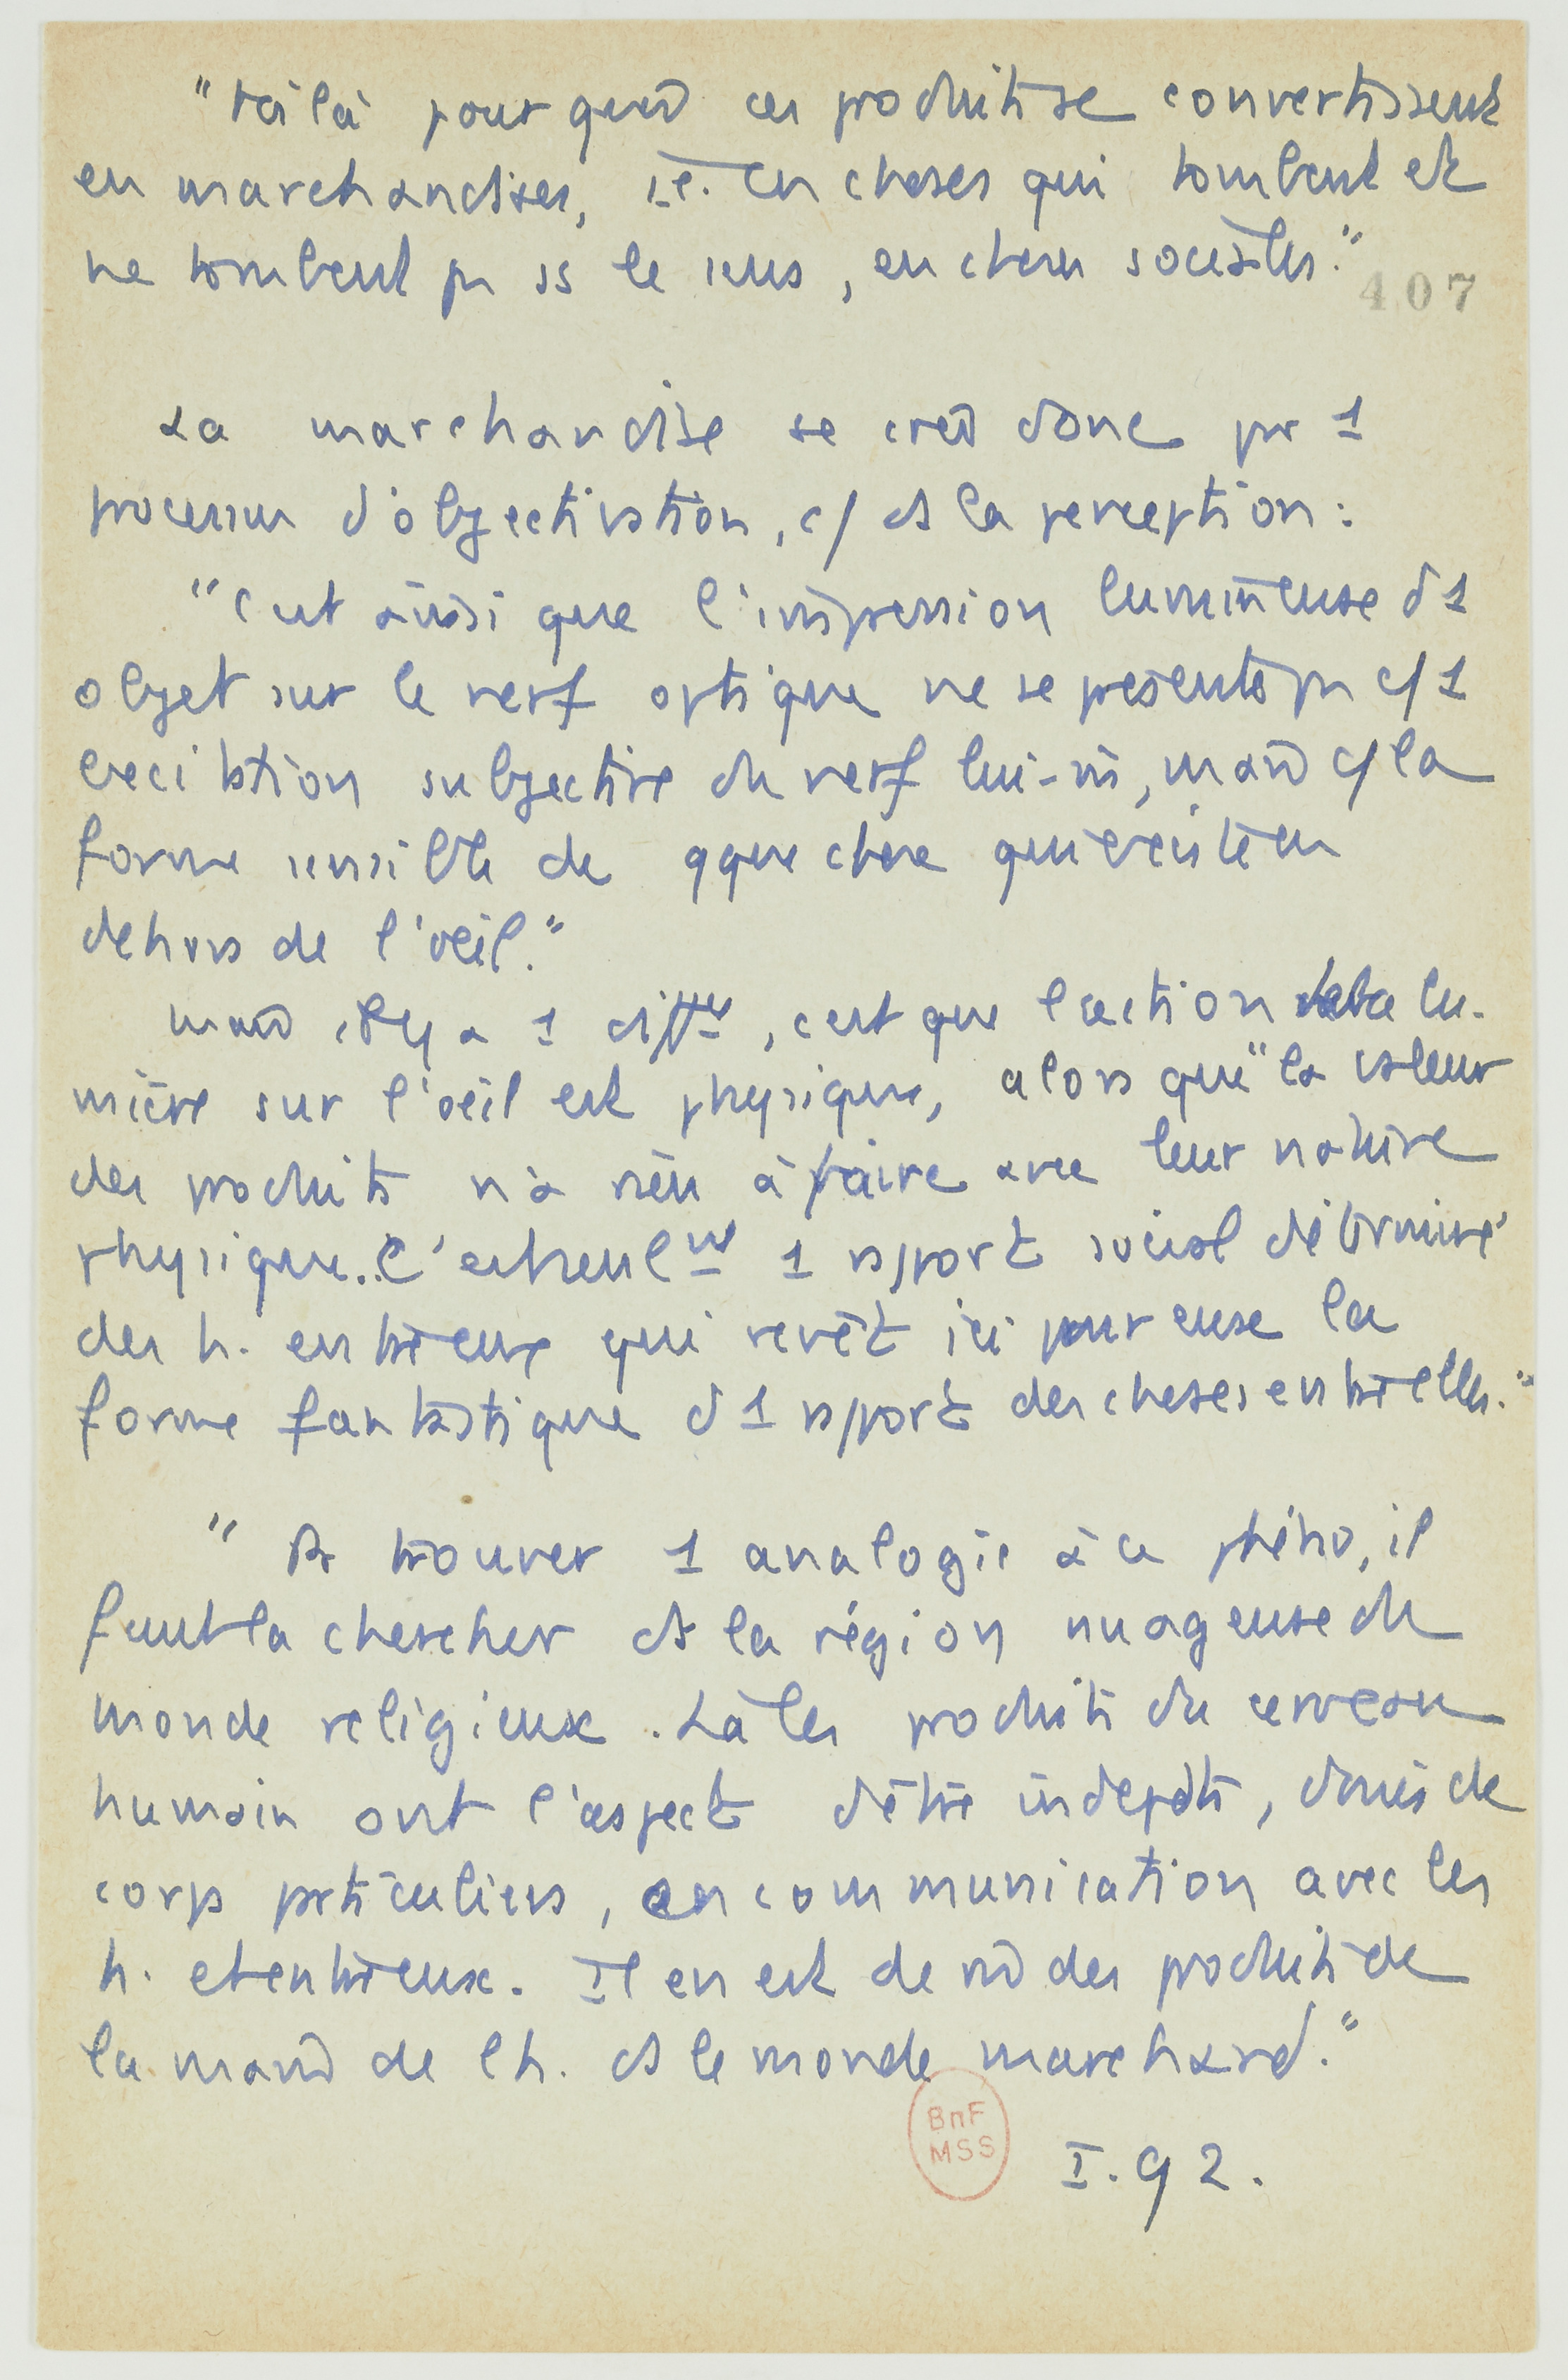 "Voilà pourquoi ces produits se convertissent
en marchandises, i.e. en choses qui tombent et
ne tombent pas ss le sens, en choses sociales."
407
La marchandise se crée donc par 1
processus d'objectivation, c/ ds la perception :
"C'est ainsi que l'impression lumineuse d'1
objet sur le nerf optique ne se présente pas c/ 1
excitation subjective du nerf lui-m̂, mais c/ la
forme sensible de qque chose qui existe en
dehors de l'œil."
Mais il y a 1 diffce, c'est que l'action de la lu-
mière sur l'œil est physique, alors que "la valeur
des produits n'a rien à faire avec leur nature
physique.. C'est seulnt 1 rapport social déterminé
des h. entre eux qui revêt ici pour eux la
forme fantastique d'1 rapport des choses entre elles."
"Pr trouver 1 analogie à ce phéno, il
faut la chercher ds la région nuageuse du
monde religieux. Là les produits du cerveau
humain ont l'aspect d'être indepdts, doués de
corps particuliers, en communication avec les
h. et entre eux. Il en est de m̂ des produits de
la main de l'h. ds le monde marchand."
BnF
MSS
I. 92.